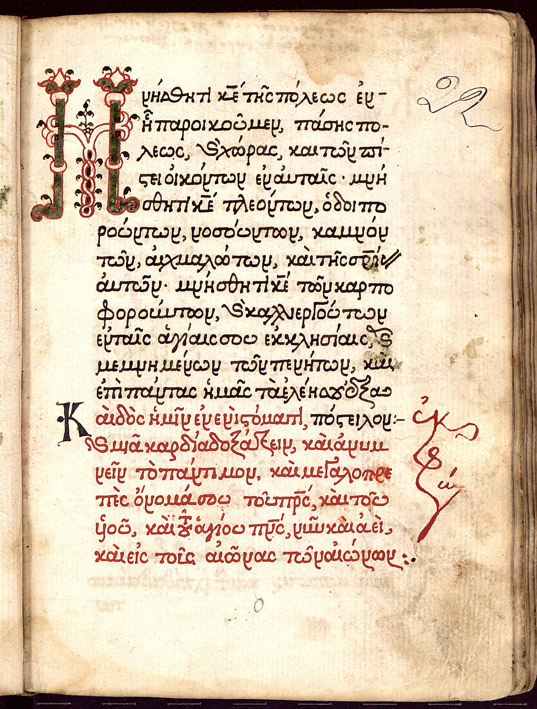 Μνήσθητι κε τῆς πόλεως ἐν
ᾗ παροικοῦμεν, πάσης πό
λεως, ϗ χώρας, καὶ τῶν πί
στει οἰκούντων ἐν αὐταῖς · μνή
σθητι κε πλεόντων, ὁδοιπο
ρούντων, νοσούντων, καμνόν
των, αἰχμαλώτων, καὶ τῆς σρίας
αὐτῶν · μνήσθητι κε τῶν καρπο
φορούντων, ϗ καλλιεργούντων
ἐν ταῖς ἁγίαις σου ἐκκλησίαις, ϗ
μεμνημένων τῶν πενήτων, καὶ
ἐπὶ πάντας ἡμᾶς τὰ ἐλέη σου
Καὶ δὸς ἡμῖν ἐν ἑνὶ στόματι,
ϗ μιᾶ καρδία δοξάζειν, καὶ ἀνυμ
νεῖν τὸ πάντιμον, καὶ μεγαλοπρε
πὲς ὄνομά σου τοῦ πρς, καὶ τοῦ
υἱοῦ, καὶ τοῦ ἁγίου πνς, νῦν καὶ ἀεὶ,
καὶ εἰς τοὺς αἰῶνας τῶν αἰώνων :